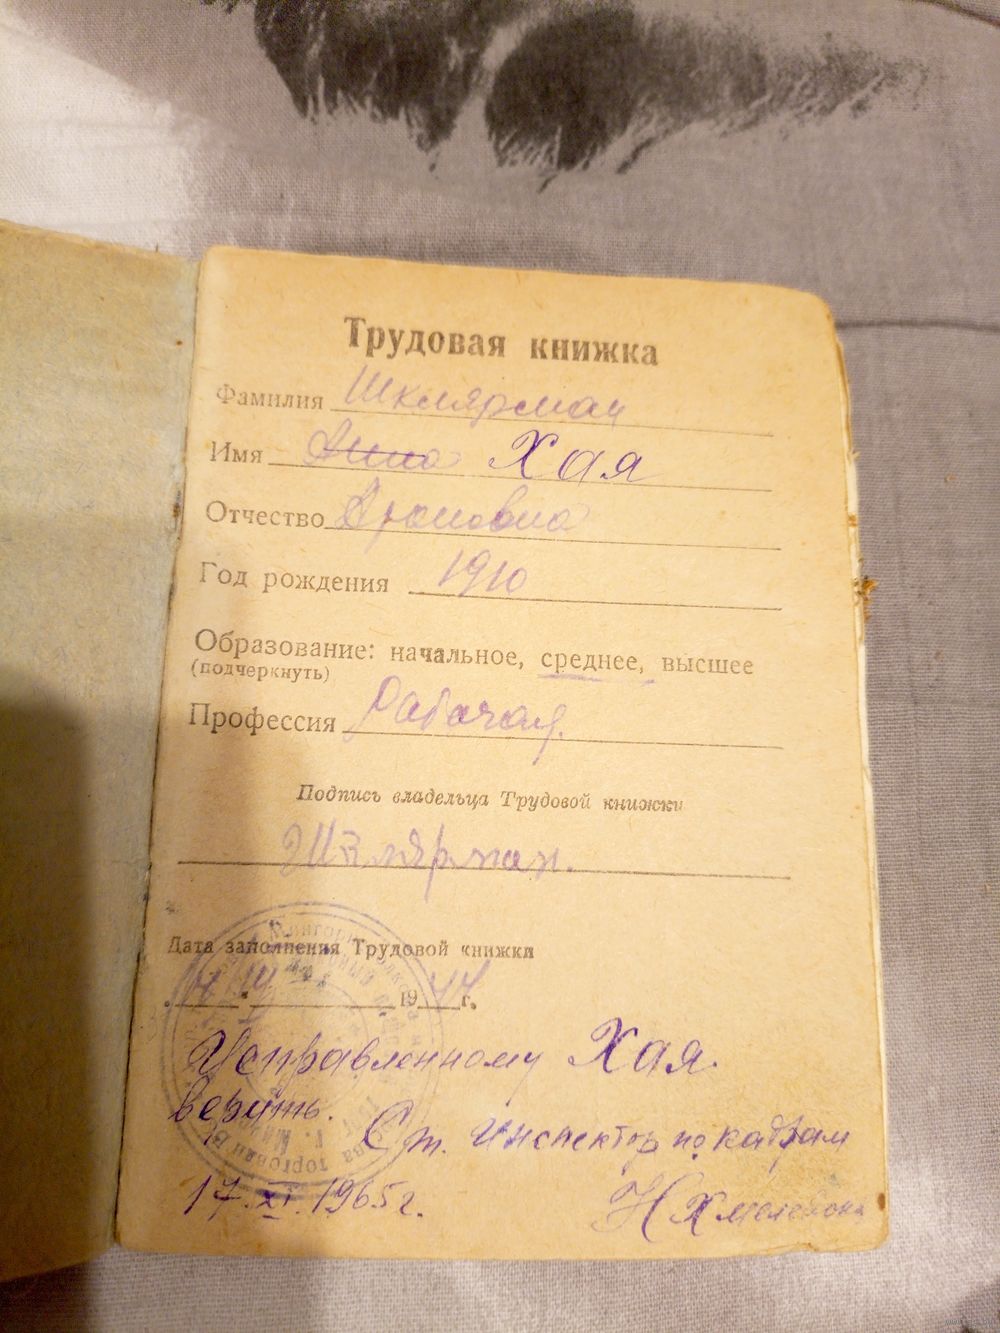 Трудовая книжка
Фамилия Шклярман
Имя Анна Хая
Отчество Ароновна
Год рождения 1910
Образование: начальное, среднее, высшее
(подчеркнуть)
Профессия Рабочая.
Подпись владельца Трудовой книжки
Шклярман.
Дата заполнения Трудовой книжки
1944 г.
Исправленному Хая.
верить.
Ст. инспектор по кадрам
17.XI.1965 г.